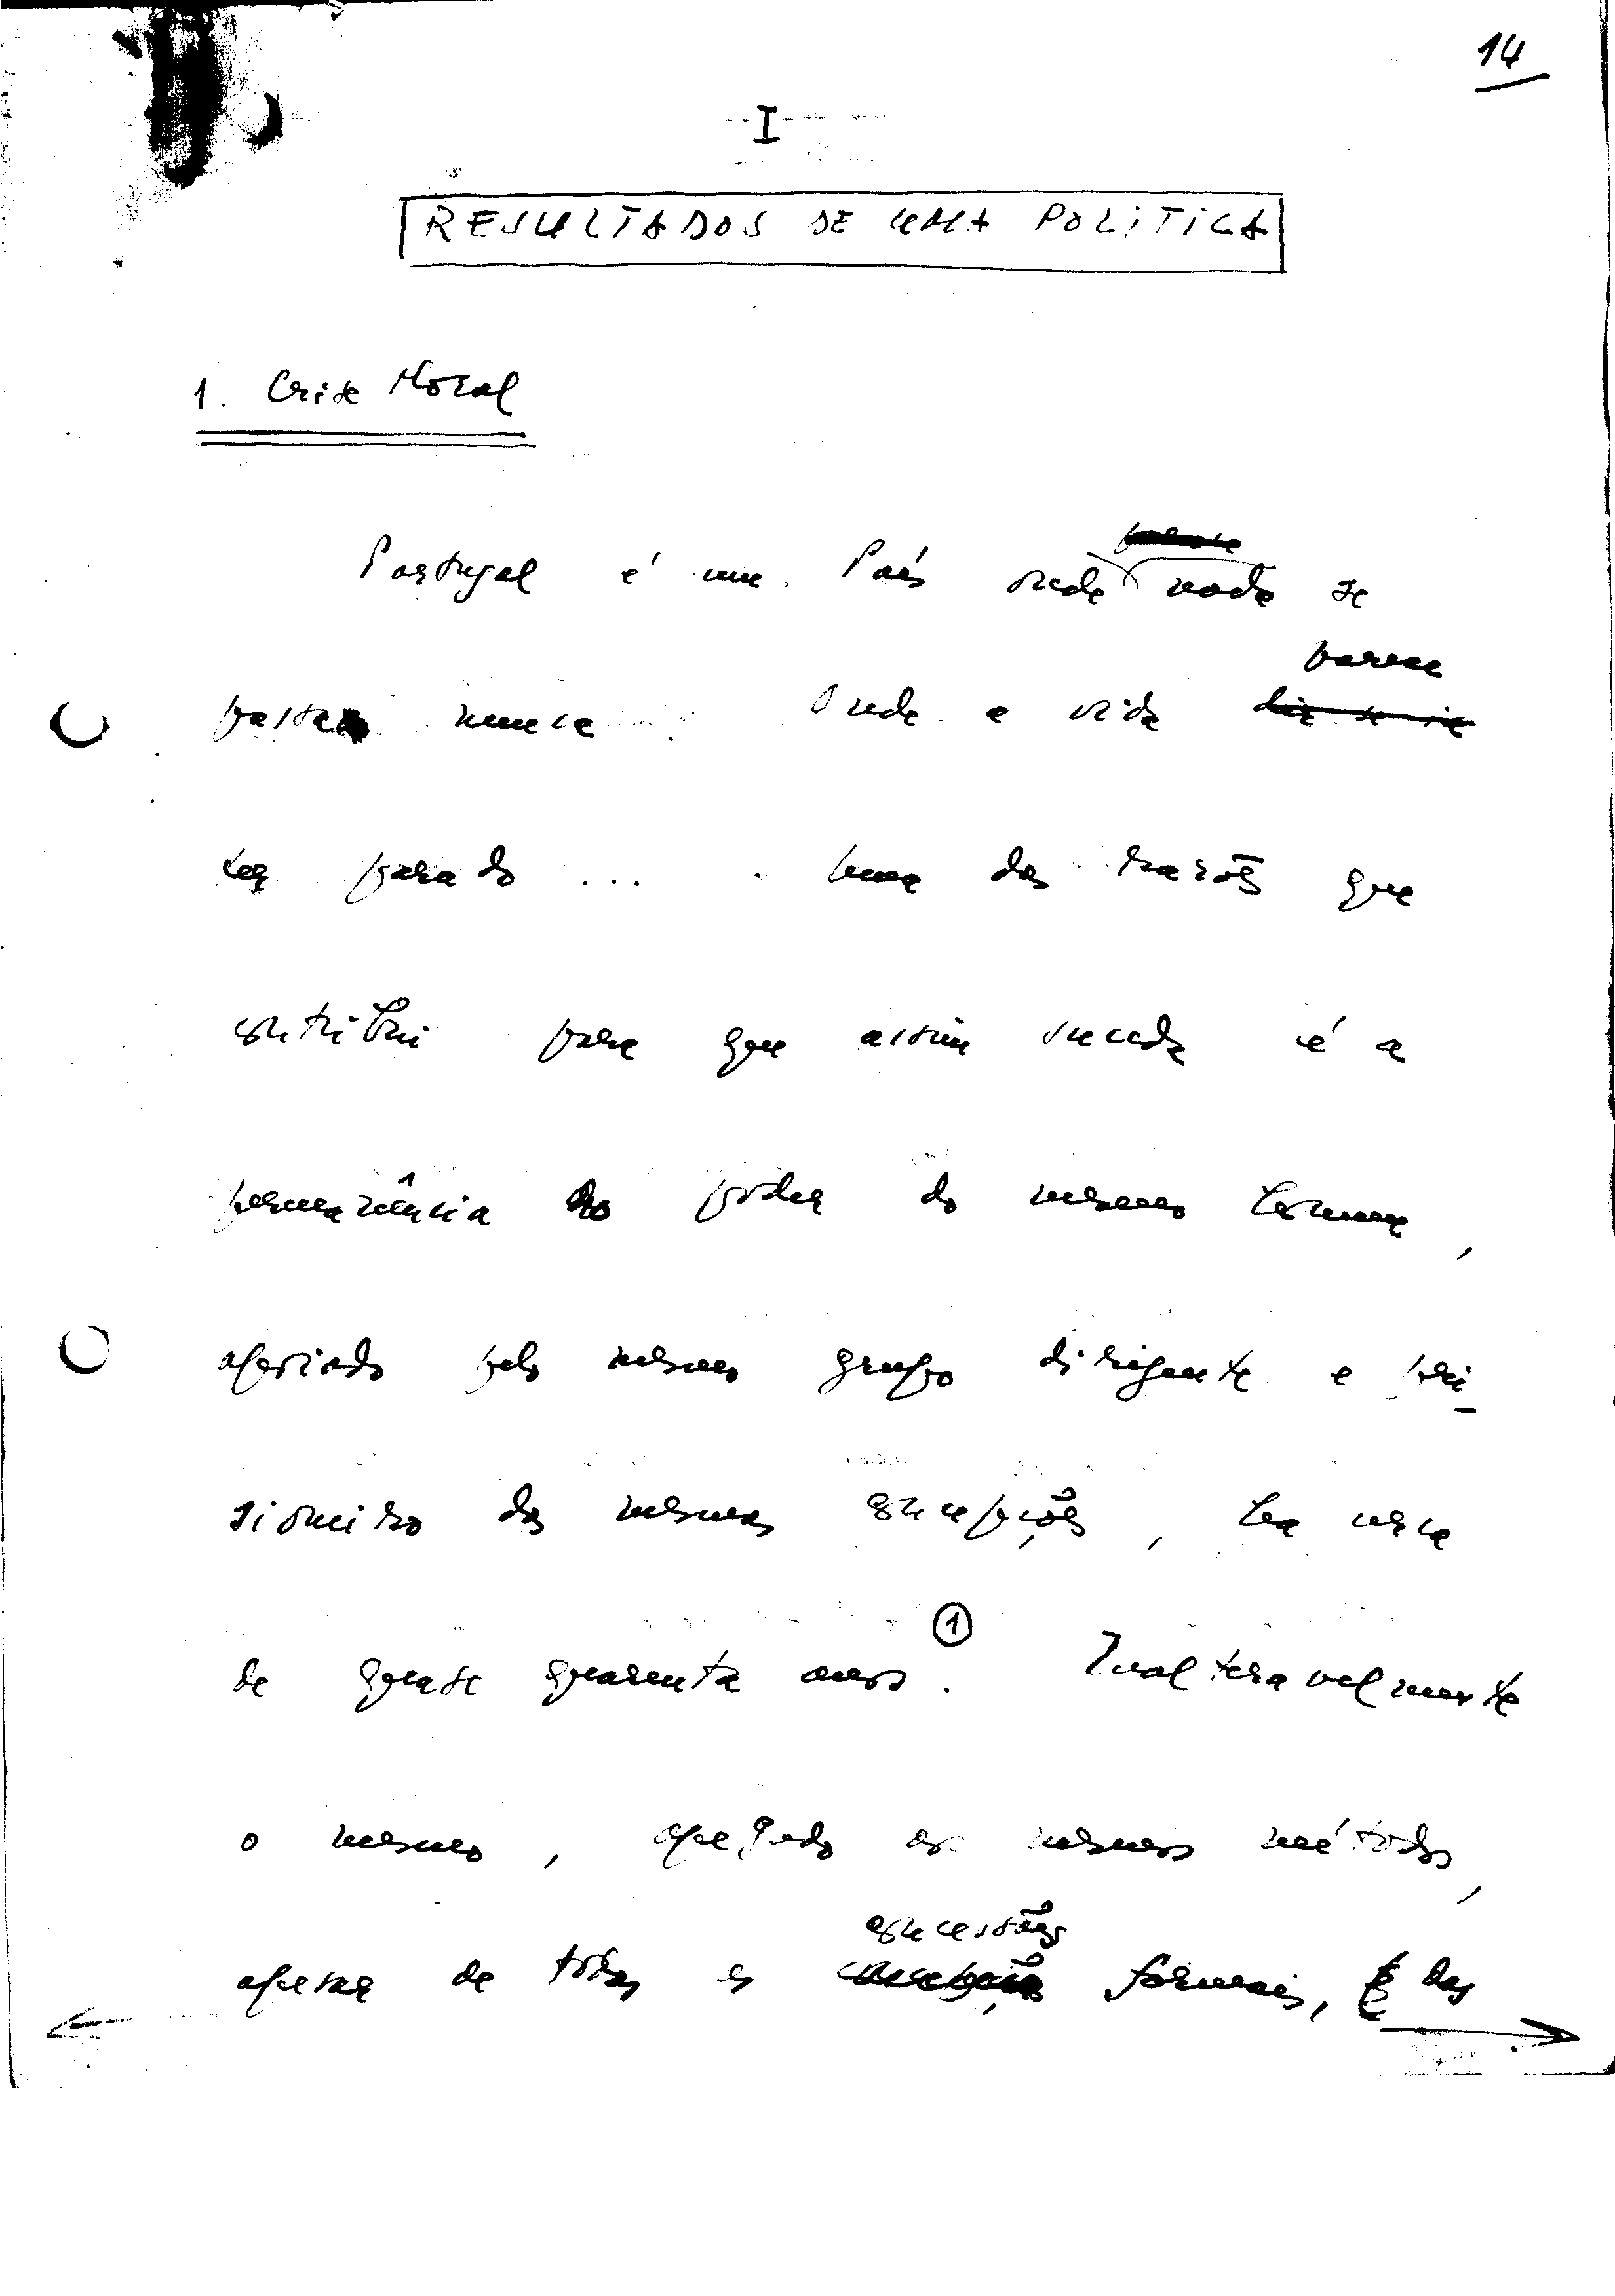 14
I
RESULTADOS DE UMA POLITICA
1. Crise Moral
Portugal é um País onde nada se
parece
passa nunca. Onde a vida
ter parado ... . Uma das razões que
contribui para que assim suceda é a
permanência no poder do mesmo homem,
apoiado pelo mesmo grupo dirigente e pri-
sioneiro das mesmas concepções, há cerca
de quase quarenta anos ①. Inalteravelmente
o mesmo, apegado aos mesmos métodos,
concessões
apesar de todas as formais, e das